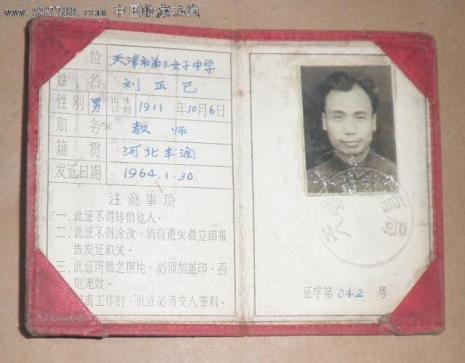 位 天津市第三女子中学
姓名 刘正己
性别 男 出生日期 1911年10月6日
职务 教师
籍贯 河北丰润
发证日期 1964.1.30
注意事项
一、此证不得转借他人。
二、此证不得涂改，倘有遗失者立即报
告发证机关。
三、此证所贴之照片，必须加盖印，否
则无效。
离工作时，此证必须交人事科。
证字第 042 号